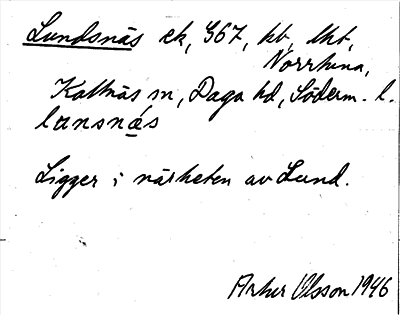 Lundsnäs ek, 967, kb, tht,
Norrhina,
Kattnäs sn, Daga hd, Söderm. l.
lansnäs
Ligger i närheten av Lund.
Artur Olsson 1946